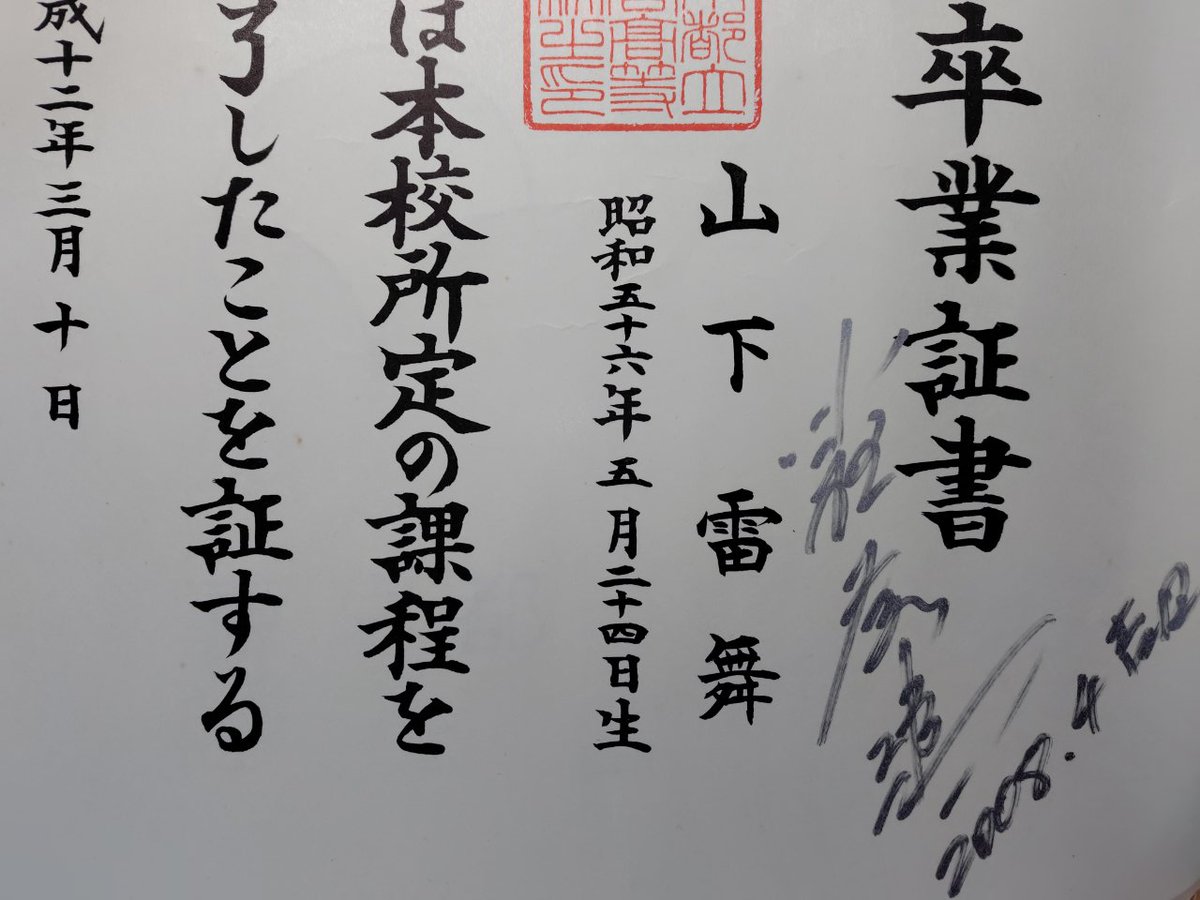 卒業証書
山下雷舞
昭和五十六年五月二十四日生
は本校所定の課程を
了したことを証する
成十二年三月十日
2008.4 吉日